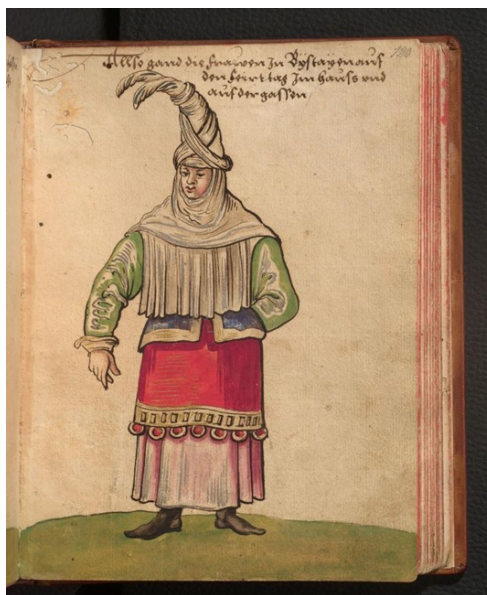 Allso gand die frawen Jn Bystayen auf
den feirttag Jm hauss vnd
auf der gassen